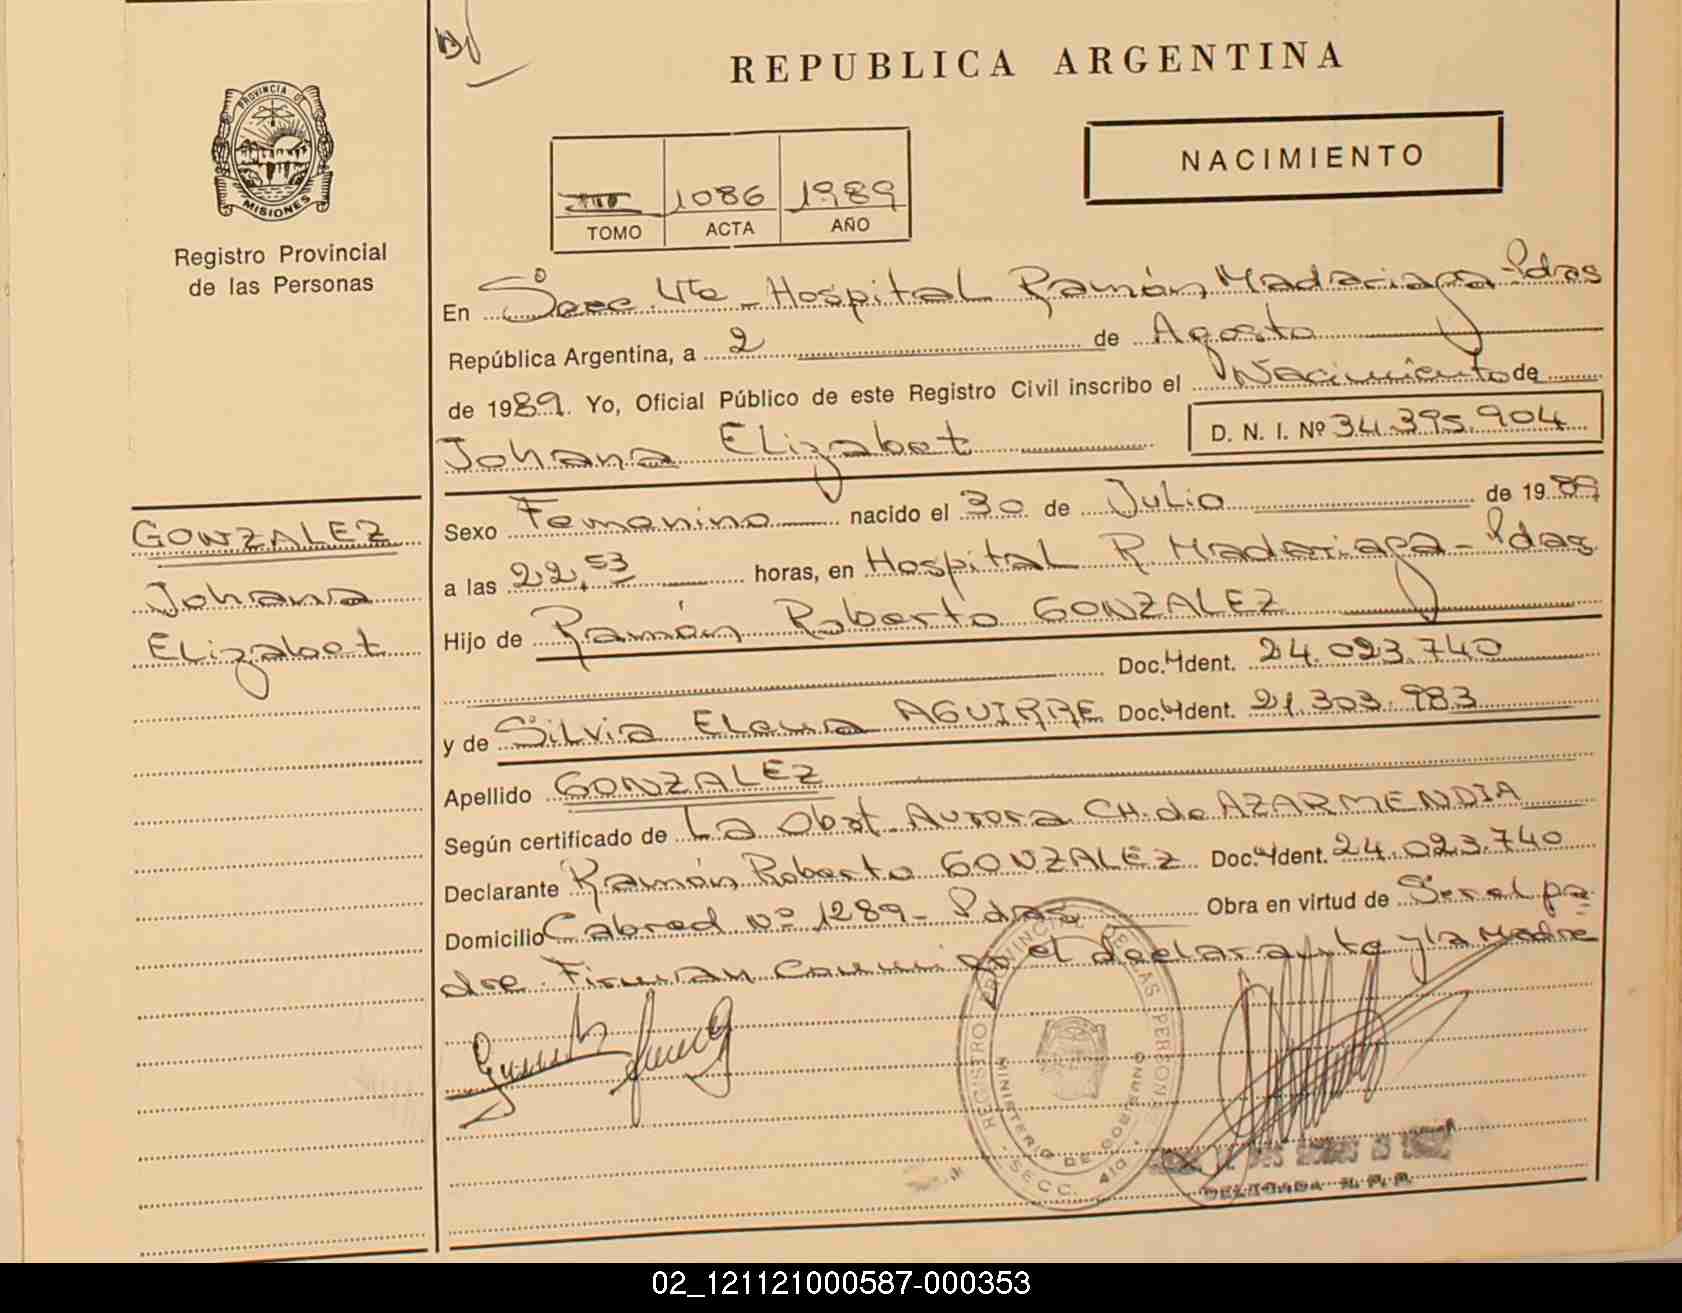 REPUBLICA ARGENTINA
NACIMIENTO
1086 1989
TOMO ACTA AÑO
PROVINCIA DE
MISIONES
Registro Provincial
de las Personas
En Secc. 4ta - Hospital Ramón Madariaga - Pdas
República Argentina, a 2 de Agosto
de 1989. Yo, Oficial Público de este Registro Civil inscribo el Nacimiento de
Johana Elizabet D. N. I. Nº 34.395.904
GONZALEZ
Johana
Elizabet
Sexo Femenino nacido el 30 de Julio de 1989
a las 22,53 horas, en Hospital R. Madariaga - Pdas
Hijo de Ramón Roberto GONZALEZ
Doc. Ident. 24.023.740
y de Silvia Elena AGUIRRE Doc. Ident. 21.303.983
Apellido GONZALEZ
Según certificado de La Obst. Aurora CH. de AZARMENDIA
Declarante Ramón Roberto GONZALEZ Doc. Ident. 24.023.740
Domicilio Cabred Nº 1289 - Pdas Obra en virtud de Ser el pa
dre. Firman conmigo el declarante y la Madre
REGISTRO PROVINCIAL DE LAS PERSONAS
MINISTERIO DE GOBIERNO
SECC. 4ta
DELEGADA R.P.P.
02_121121000587-000353